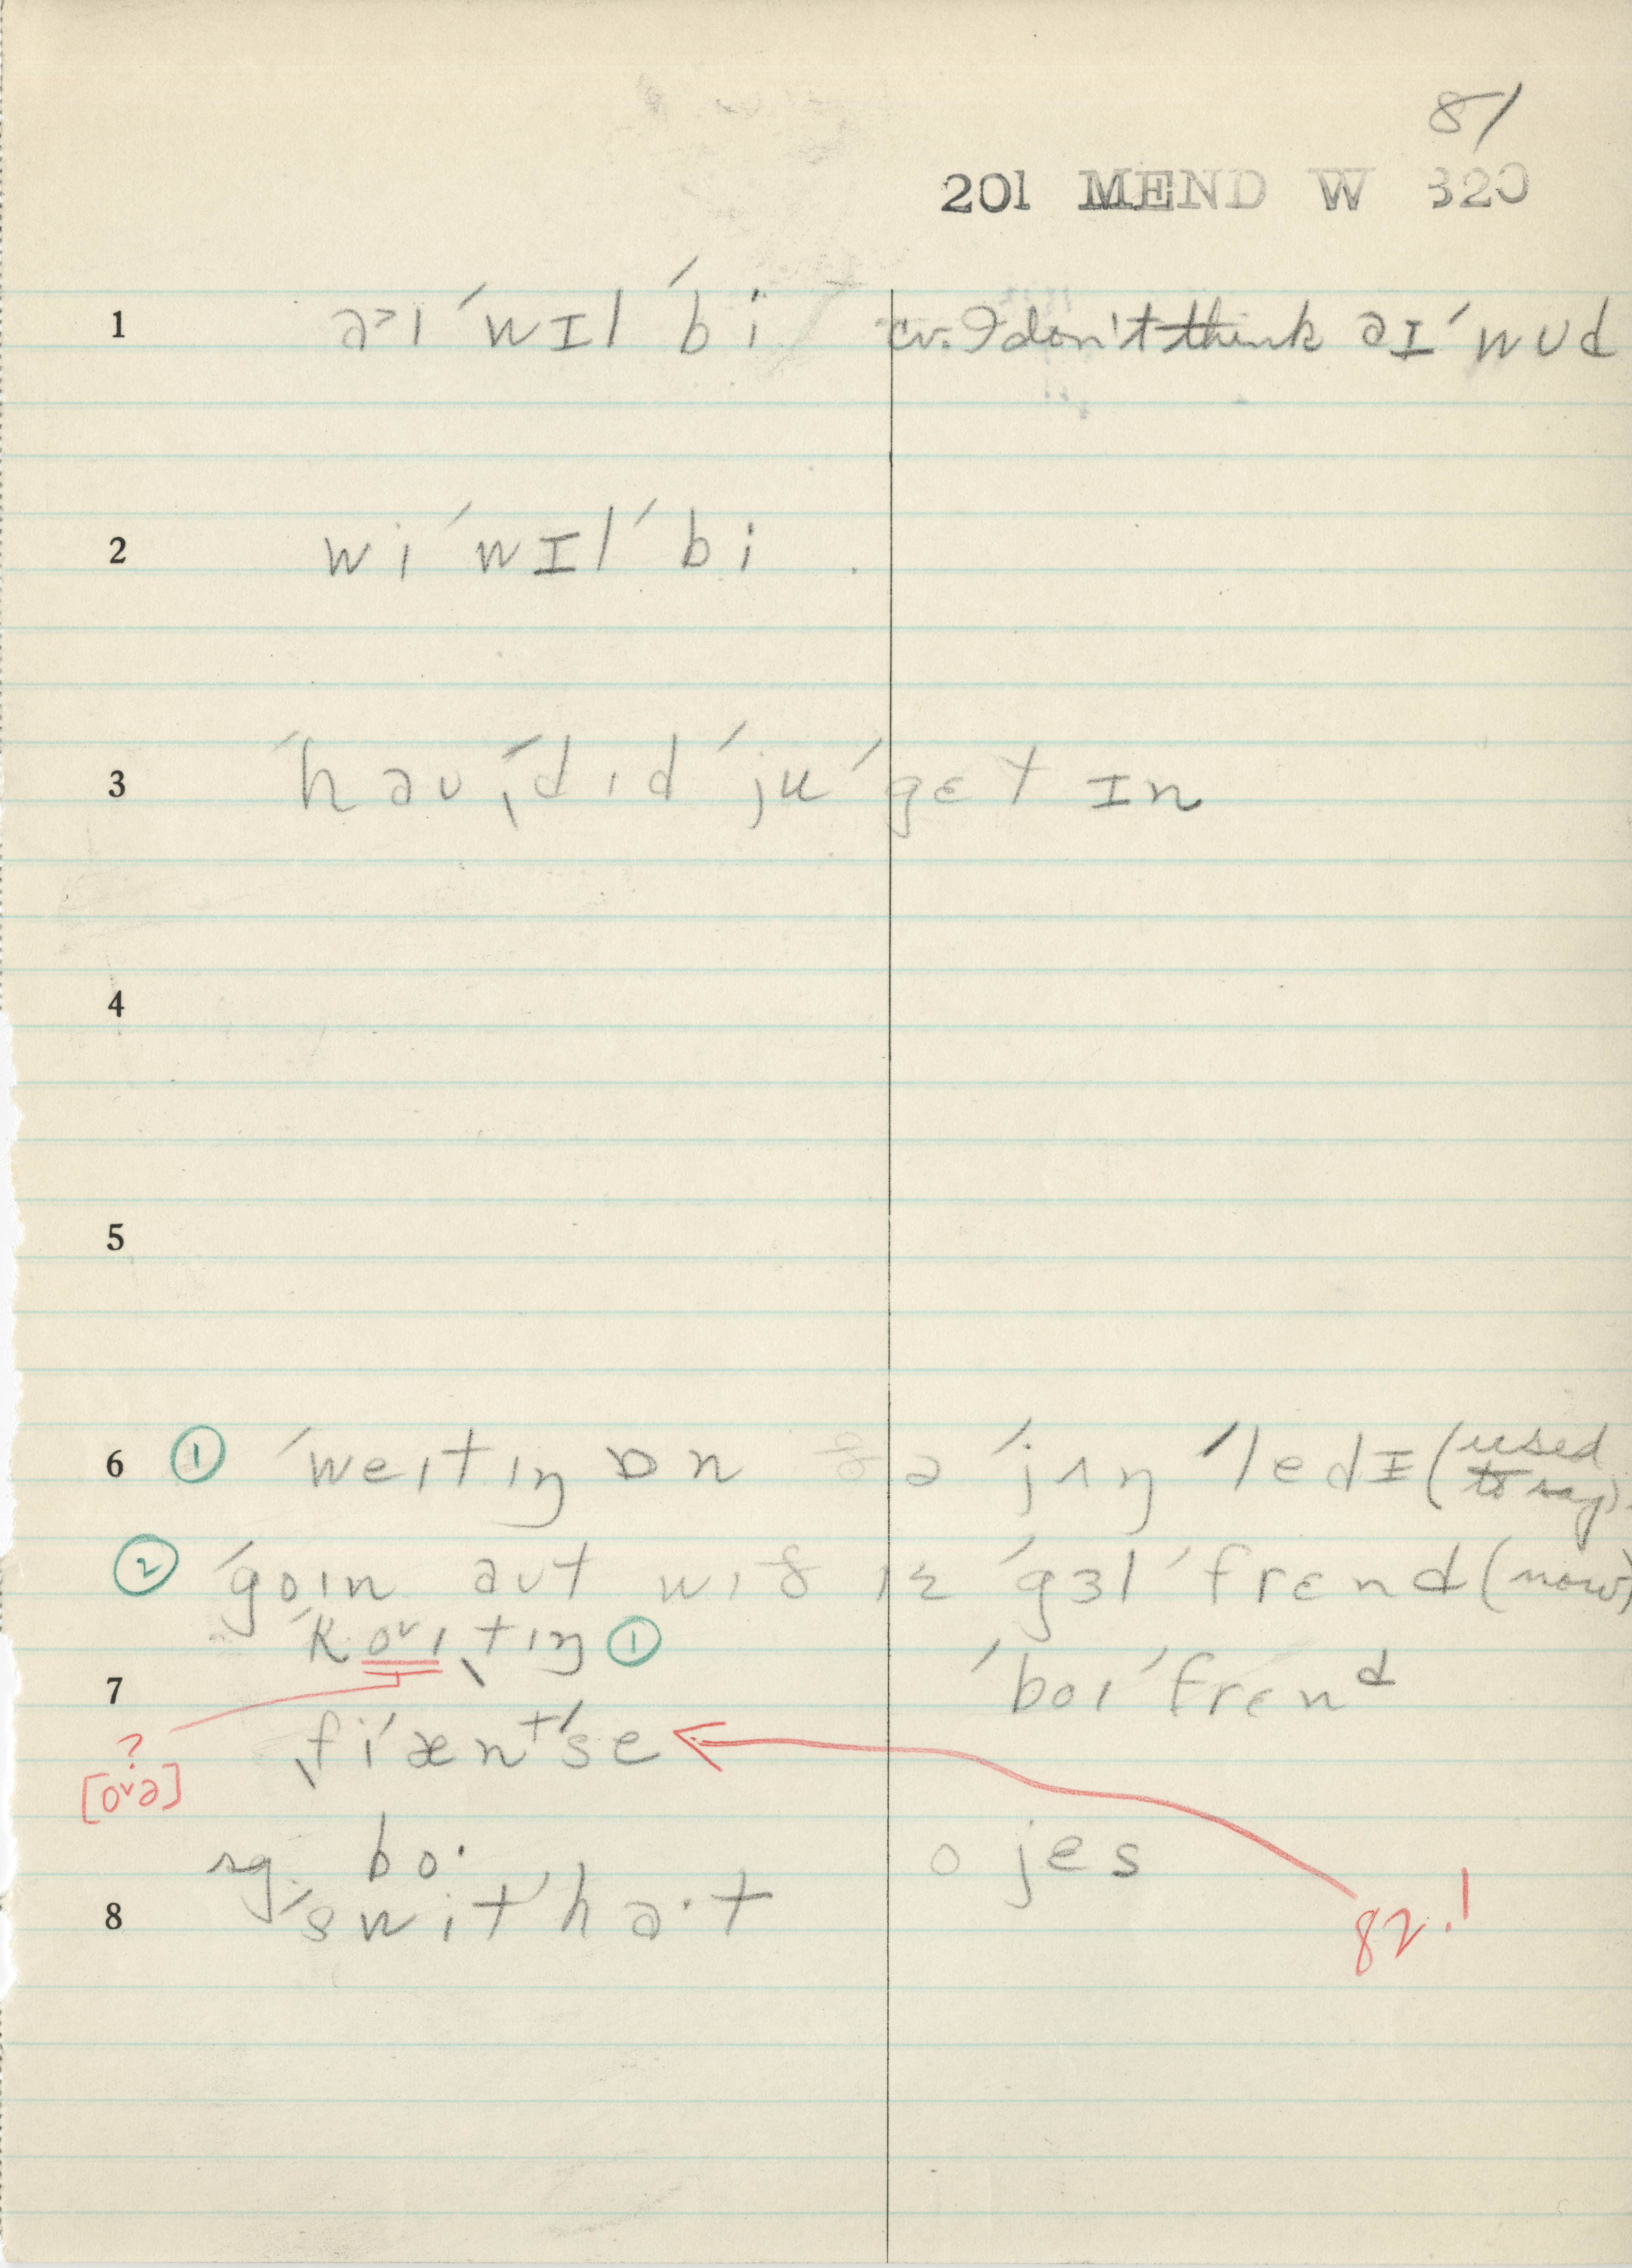 81
201 MEND W 320
1 a˃ɪ ˈwɪl ˈbi cv. I don't think aɪ ˈwʊd
2 wi ˈwɪl ˈbi
3 ˈhaʊ ˌˈdɪd ˈju ˈgɛt ɪn
4
5
6 ① ˈweɪtɪŋ ɒn ðə ˈjʌŋ ˈledɪ (used to say).
② ˈgoɪn aʊt wɪð ɪz ˈgɜl ˈfrɛnd (now)
ˈkovɪˌtɪŋ ①
7 ˈboɪ ˈfrɛnd
ˌfiˈænᵗˈse
? [ova]
sg. bo· o jes
8 ˈswitˈha·t
82.1